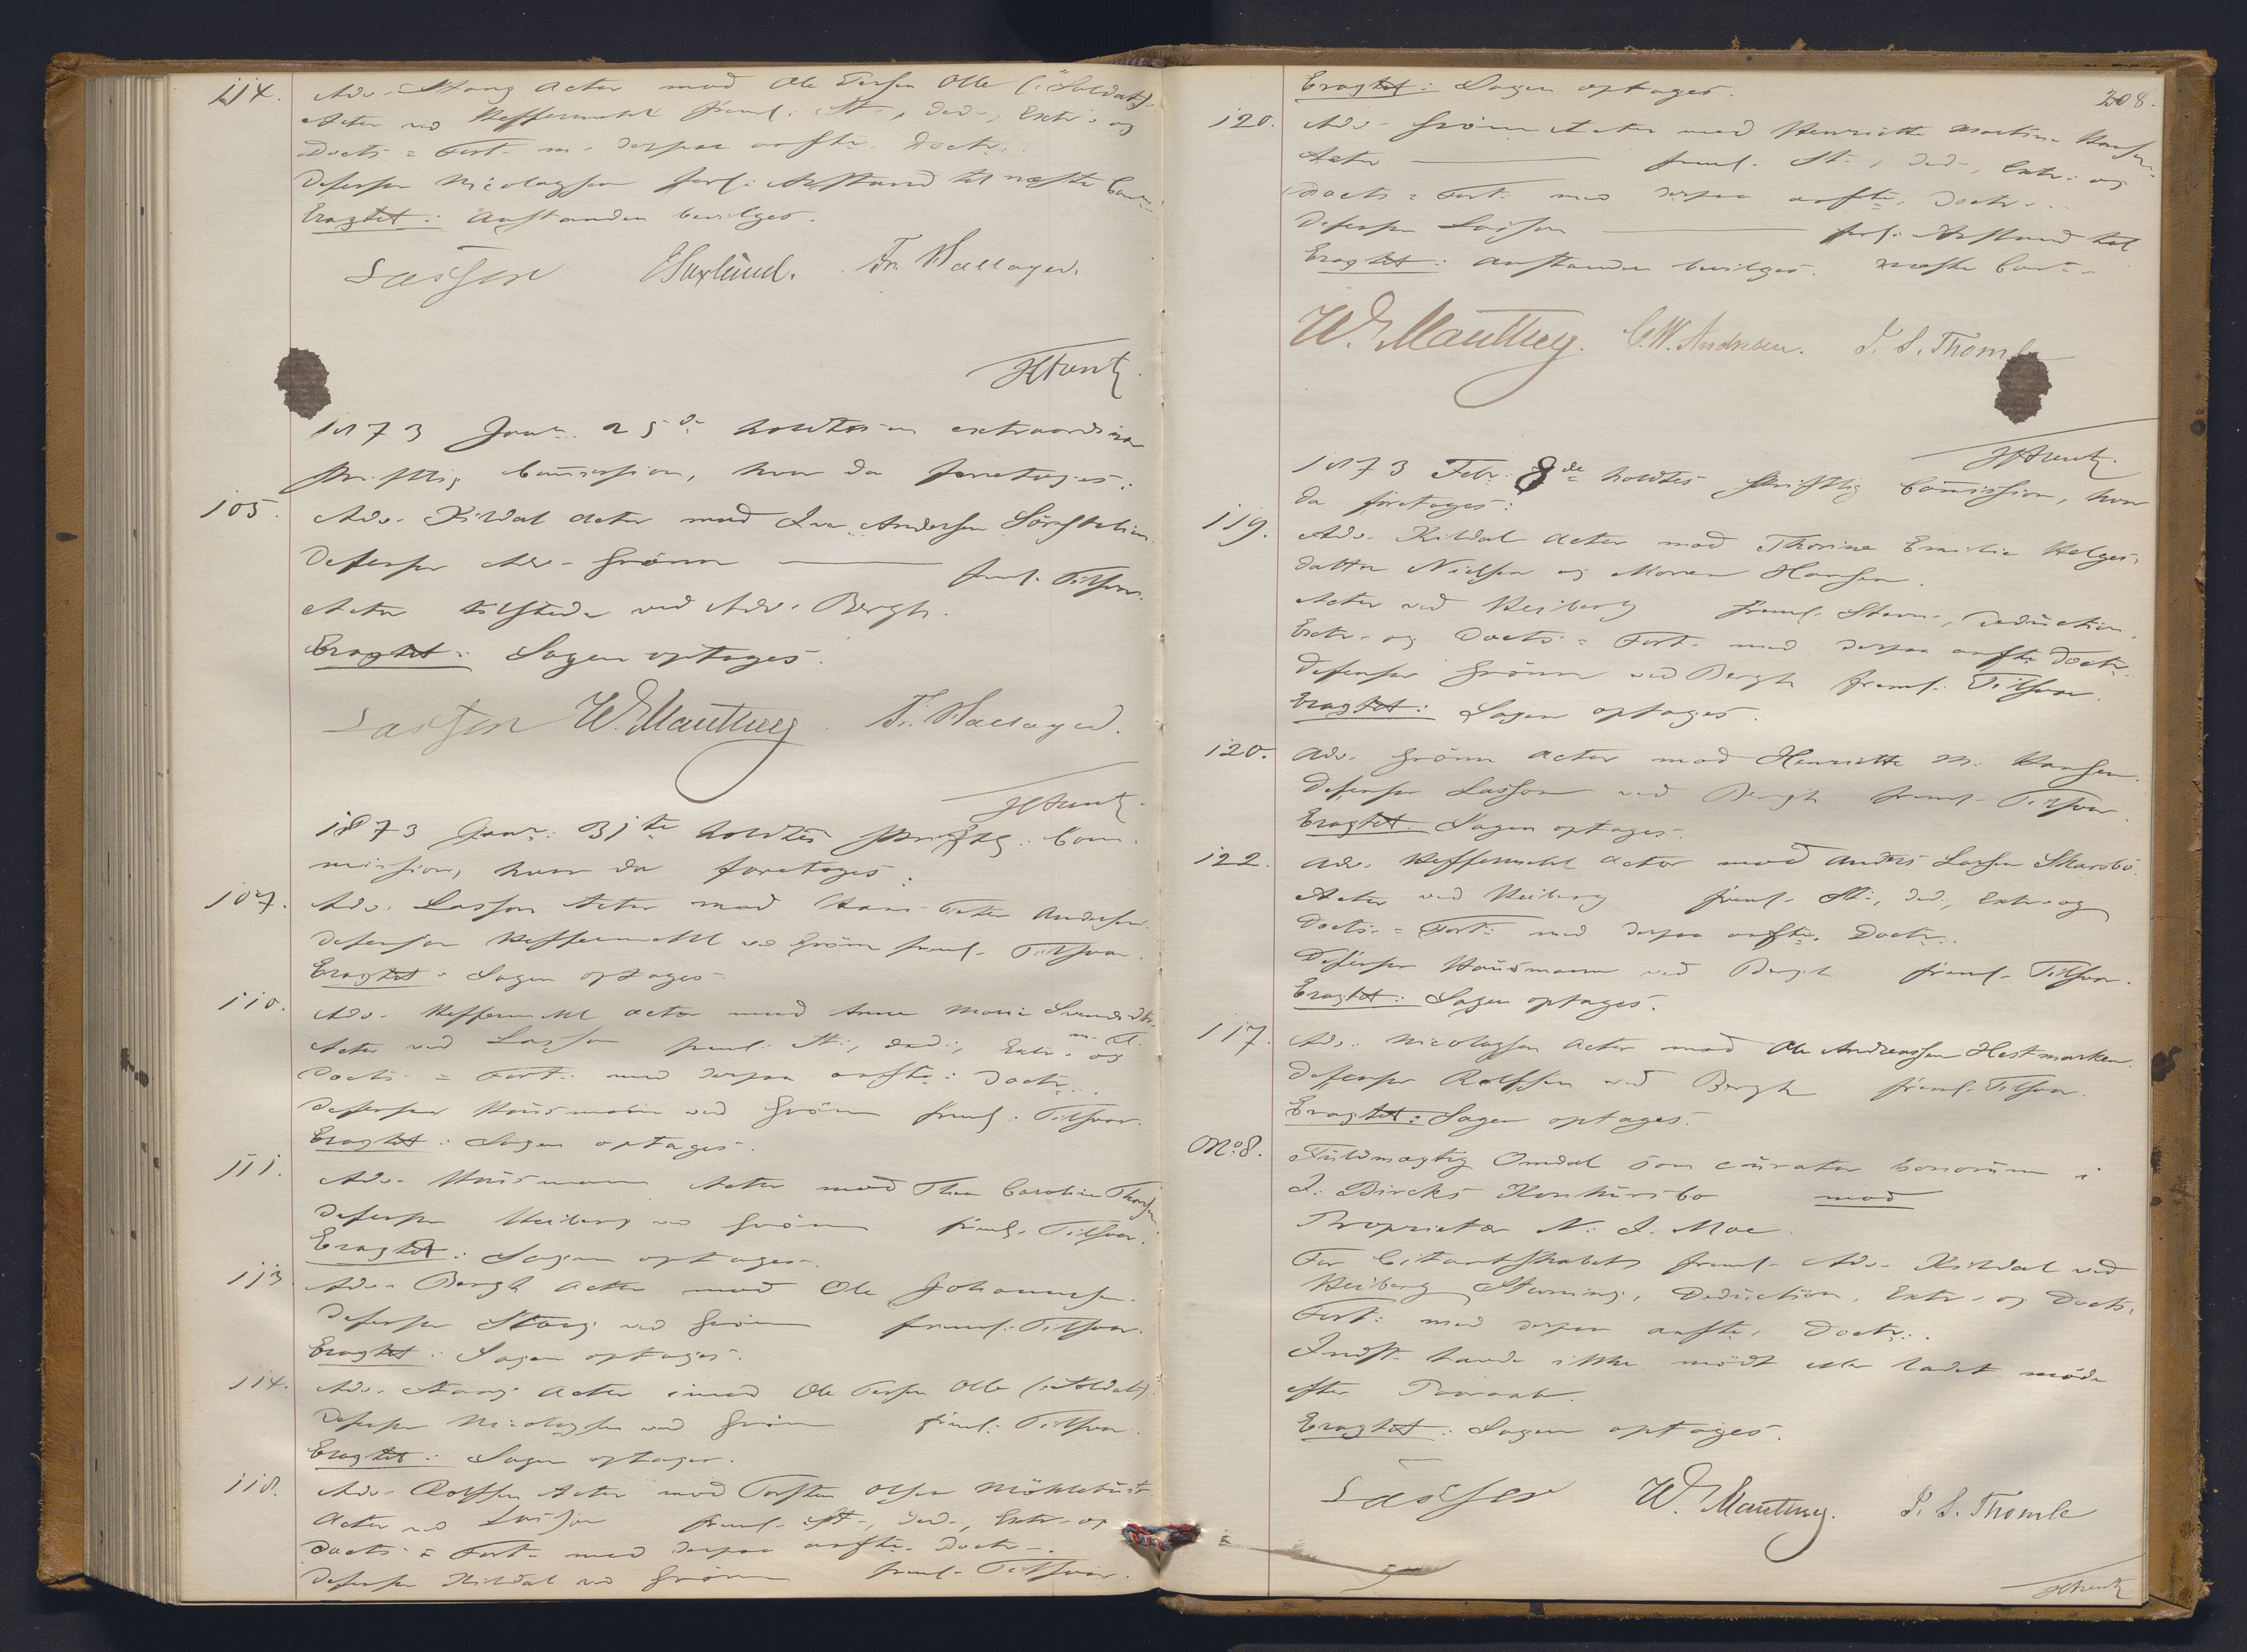 114. Adv. Stang Actor mod Ole Tersen Olle (: Soldat)
Actor ved Keffermehl freml. St., Ded., Extr. og
Docts = Fort. m. derpaa anfte. Doctr.
Defensor Nicolaysen forl. Anstand til næste Com.
Eragtet: Anstanden bevilges.
Lasson Haxlund. Fr. Hallager.
1873 Janr. 25de holdtes en extraordinær
skriftlig Commission, hvor da foretoges:
105. Adv. Kildal Actor mod Iver Andersen
Defensor Adv. Grönn — freml. Tilsvar.
Actor tilstede ved Adv. Bergh.
Eragtet: Sagen optages.
Lasson W. Manthey. Fr. Hallager.
1873 Janr. 31te holdtes skriftlig Com-
mission, hvor da foretoges:
107. Adv. Lasson Actor mod Hans Peter Andersen.
Defensor Keffermehl ved Grönn freml. Tilsvar.
Eragtet: Sagen optages.
110. Adv. Keffermehl Actor mod Anne Marie Svendsdtr.
m. fl.
Actor ved Lasson freml. St., Ded., Extr. og
Docts = Fort. med derpaa anfte. Doctr.
Defensor Housmann ved Grönn freml. Tilsvar.
Eragtet: Sagen optages.
111. Adv. Housmann Actor mod Thea Caroline
Defensor Heiberg ved Grönn freml. Tilsvar.
Eragtet: Sagen optages.
113. Adv. Bergh Actor mod Ole Johannesen.
Defensor Stang ved Grönn freml. Tilsvar.
Eragtet: Sagen optages.
114. Adv. Stang Actor imod Ole Tersen Olle (: Soldat)
Defensor Nicolaysen ved Grönn freml. Tilsvar.
Eragtet: Sagen optages.
118. Adv. Rolfsen Actor mod Torsten Olsen
Actor ved Lasson freml. St., Ded., Extr. og
Docts = Fort. med derpaa anfte. Doctr.
Defensor Kildal ved Grönn freml. Tilsvar.
208.
Eragtet: Sagen optages.
120. Adv. Grönn Actor mod Henriette Martine Hansen.
Actor — freml. St., Ded., Extr. og
Docts = Fort. med derpaa anfte. Doctr.
Defensor Lasson — forl. Anstand til
Eragtet: Anstanden bevilges. næste Com.
W. Manthey. C. W. Andresen. I. S. Thomle
1873 Febr. 8de holdtes skriftlig Commission, hvor
da foretoges:
119. Adv. Kildal Actor mod Thorine Emilie Helges-
datter Nielsen og Maren Hansen.
Actor ved Heiberg freml. Stevn., Deduction,
Extr. og Docts = Fort. med derpaa anfte Doctr.
Defensor Grönn ved Bergh freml. Tilsvar.
Eragtet: Sagen optages.
120. Adv. Grönn Actor mod Henriette M. Hansen.
Defensor Lasson ved Bergh freml. Tilsvar.
Eragtet. Sagen optages.
122. Adv. Keffermehl Actor mod Anders Larsen Skarsbö.
Actor ved Heiberg freml. St., Ded., Extr. og
Docts. = Fort. med derpaa anfte. Doctr.
Defensor Housmann ved Bergh freml. Tilsvar.
Eragtet: Sagen optages.
117. Adv. Nicolaysen Actor mod Ole Andreassen Hestmarken.
Defensor Rolfsen ved Bergh freml. Tilsvar.
Eragtet: Sagen optages.
No 8. Fuldmægtig Omdal som curator bonorum i
I. Bircks Konkursbo mod
Proprietær N. I. Moe.
For Citantskabet freml. Adv. Kildal ved
Heiberg Stevning, Deduction, Extr. og Docts.
Fort. med derpaa anfte. Doctr.
Indst. havde ikke mödt eller ladet möde
efter Paaraab.
Eragtet: Sagen optages.
Lasson W. Manthey. I. S. Thomle